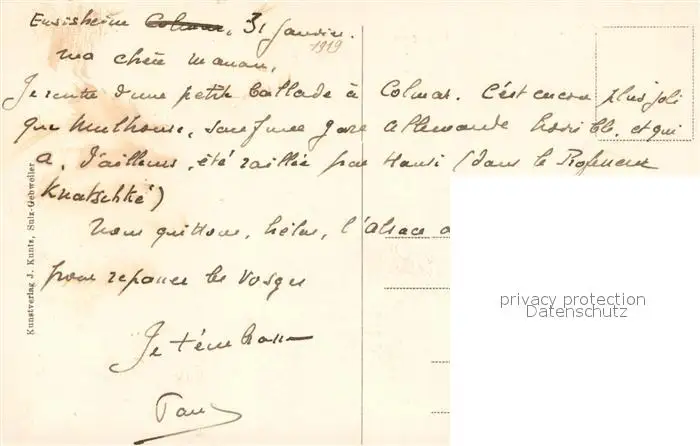 Ensisheim Colmar, 31 Janvier.
1919
Ma chère maman,
Je rentre d'une petite ballade à Colmar. C'est encore plus joli
que Mulhouse, sauf une gare allemande horrible, et qui
a, d'ailleurs, été raillée par Hansi (dans le Professeur
Knatschké)
Nous quittons, hélas, l'Alsace
pour repasser les Vosges
Je t'embrasse
Kunstverlag J. Kuntz, Sulz-Gebweiler
privacy protection
Datenschutz